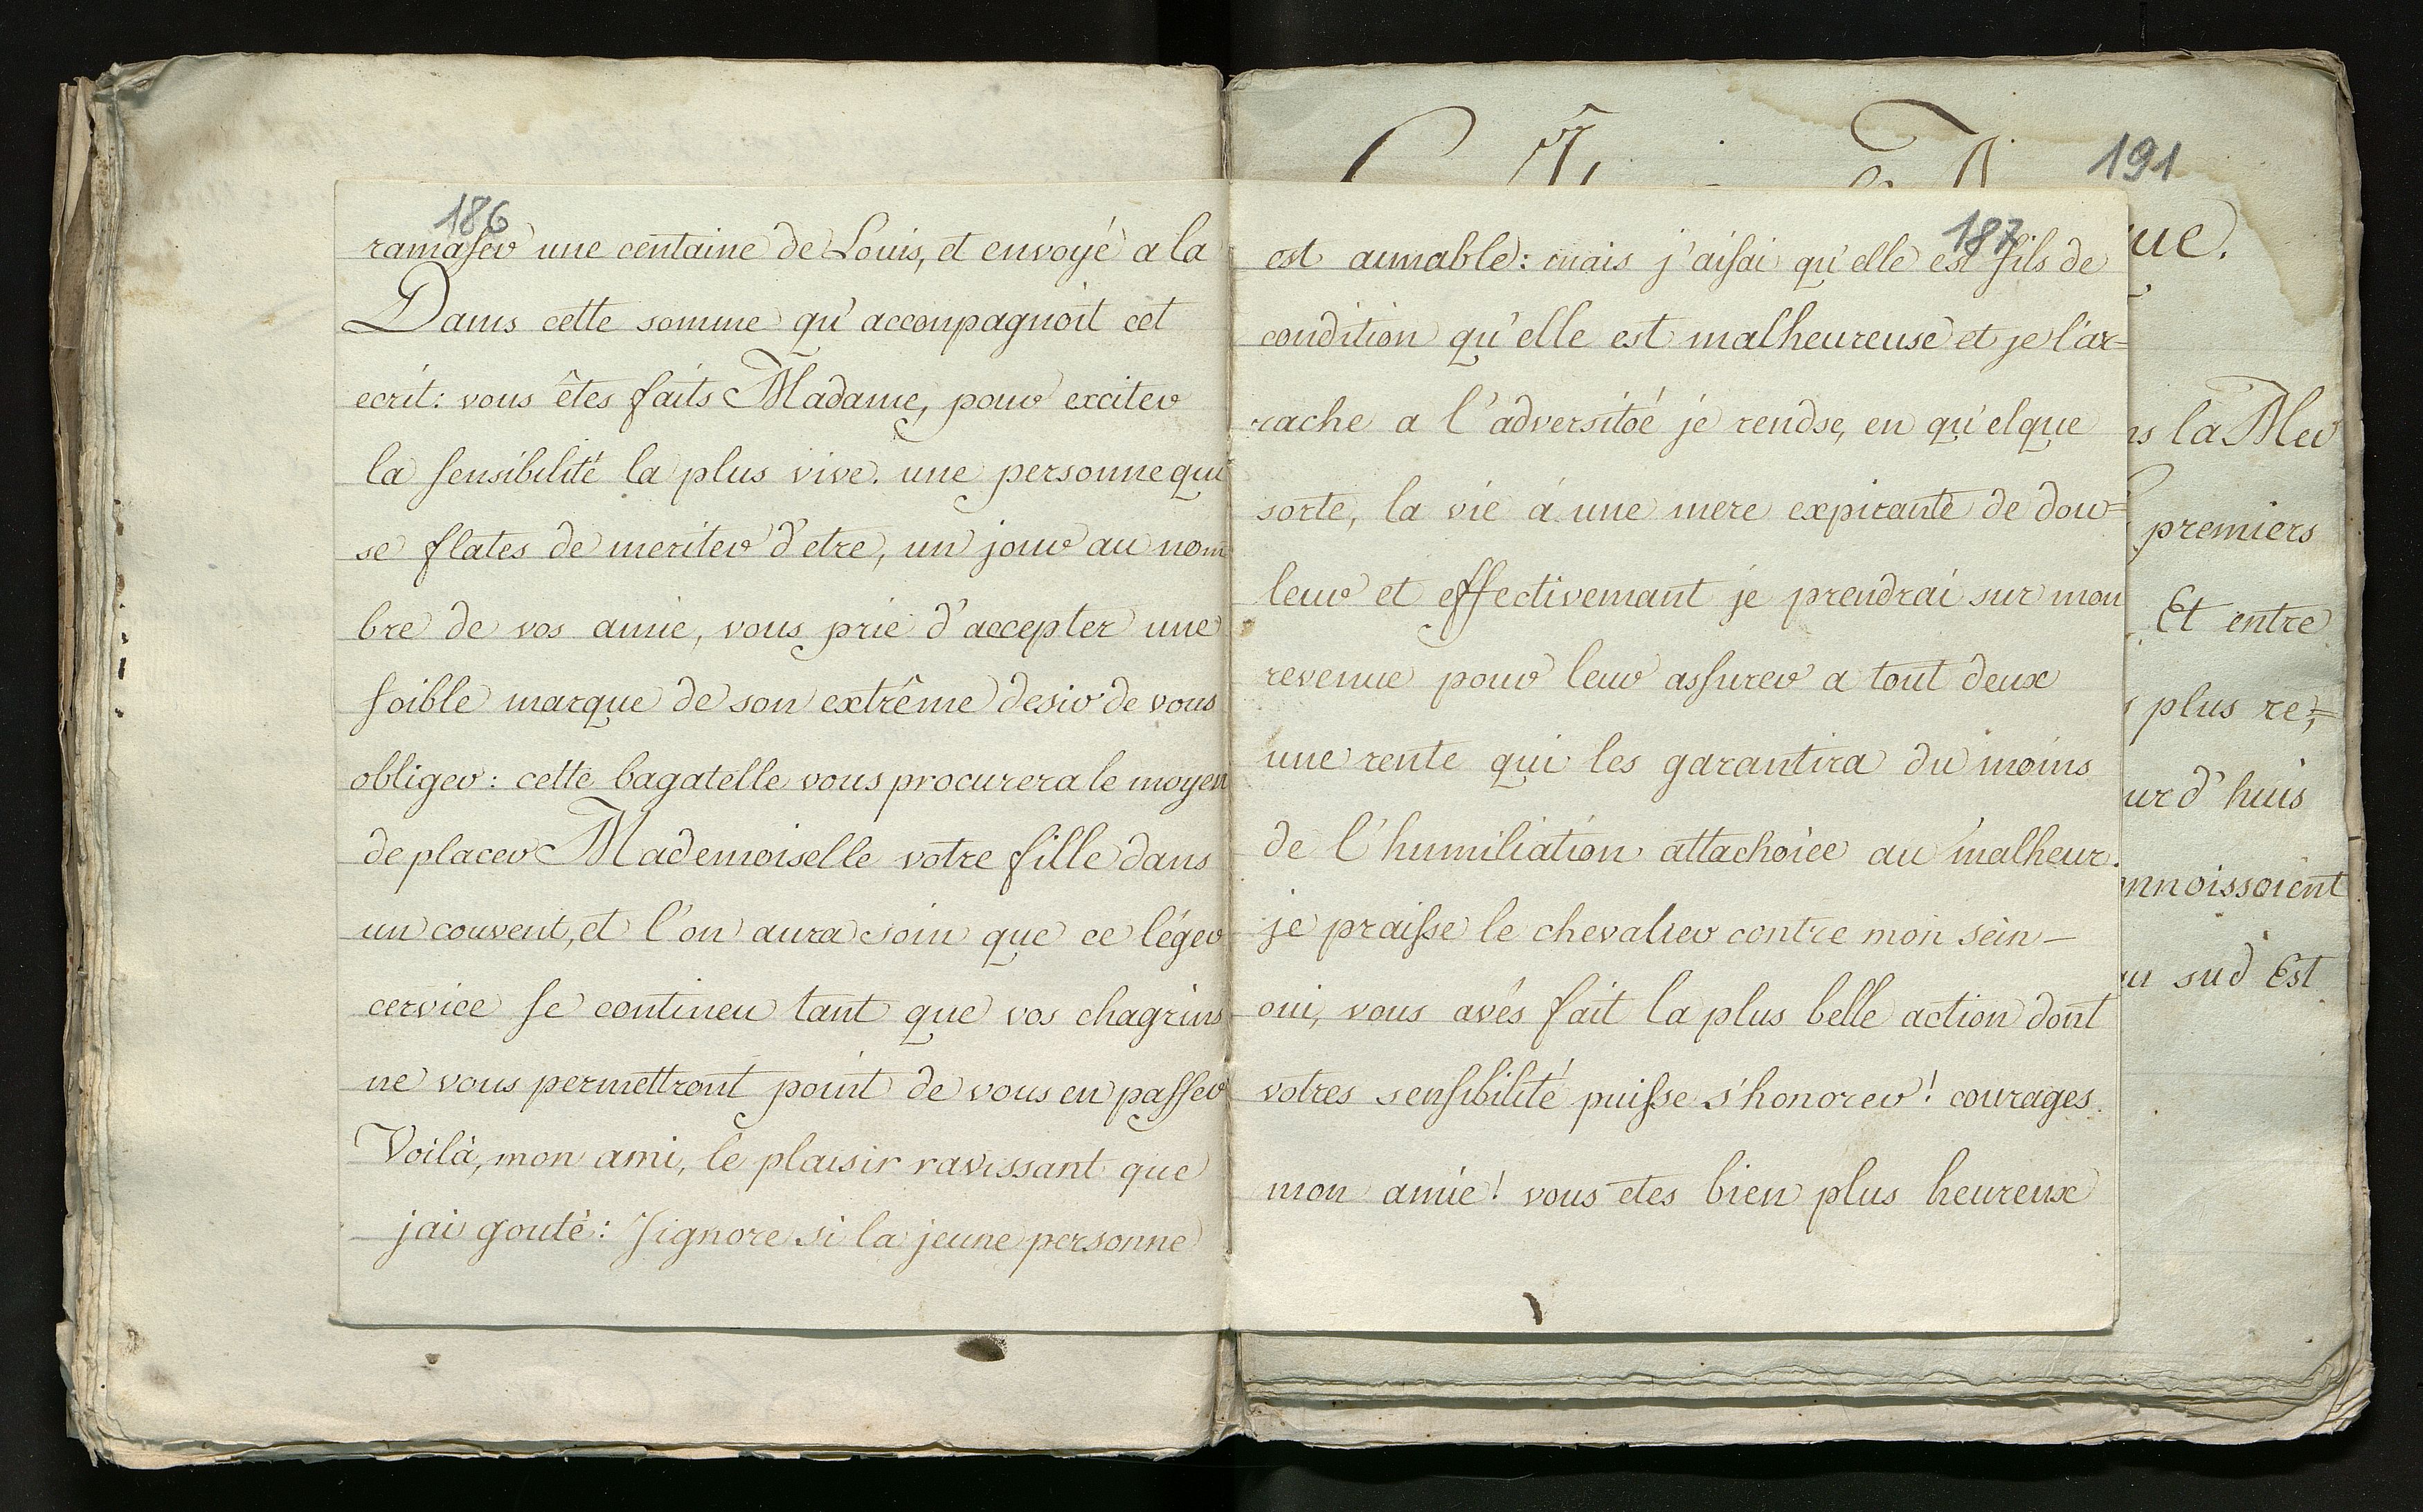 186
ramaser une centaine de Louis, et envoyé a la
Dams cette somme qu'accompagnoit cet
ecrit: vous êtes faits Madame, pour exciter
la sensibilité la plus vive. une personne qui
se flates de meriter d'etre, un jour au nom
bre de vos amie, vous prie d'accepter une
foible marque de son extrême desir de vous
obliger: cette bagatelle vous procurera le moyen
de placer Mademoiselle votre fille dans
un couvent, et l'on aura soin que ce léger
cervice se contineu tant que vos chagrins
ne vous permettront point de vous en passer
Voilà, mon ami, le plaisir ravissant que
jai gouté: Jignore si la jeune personne
187
est aimable: mais j'aisai qu'elle est fils de
condition qu'elle est malheureuse et je l'ar=
rache a l'adversitoé je rendse, en qu'elque
sorte, la vie á une mere expirante de dou=
leur et effectivemant je prendrai sur mon
revenue pour leur assurer a tout deux
une rente qui les garantira du moins
de l'humiliation attachoiee au malheur.
je praisse le chevalier contre mon sein-
oui, vous avés fait la plus belle action dont
votres sensibilité puisse s'honorer! courages.
mon amie! vous etes bien plus heureux
191
ue.
s la Mer
premiers
Et entre
plus re;=
urd'huis
nnoissoient
sud Est